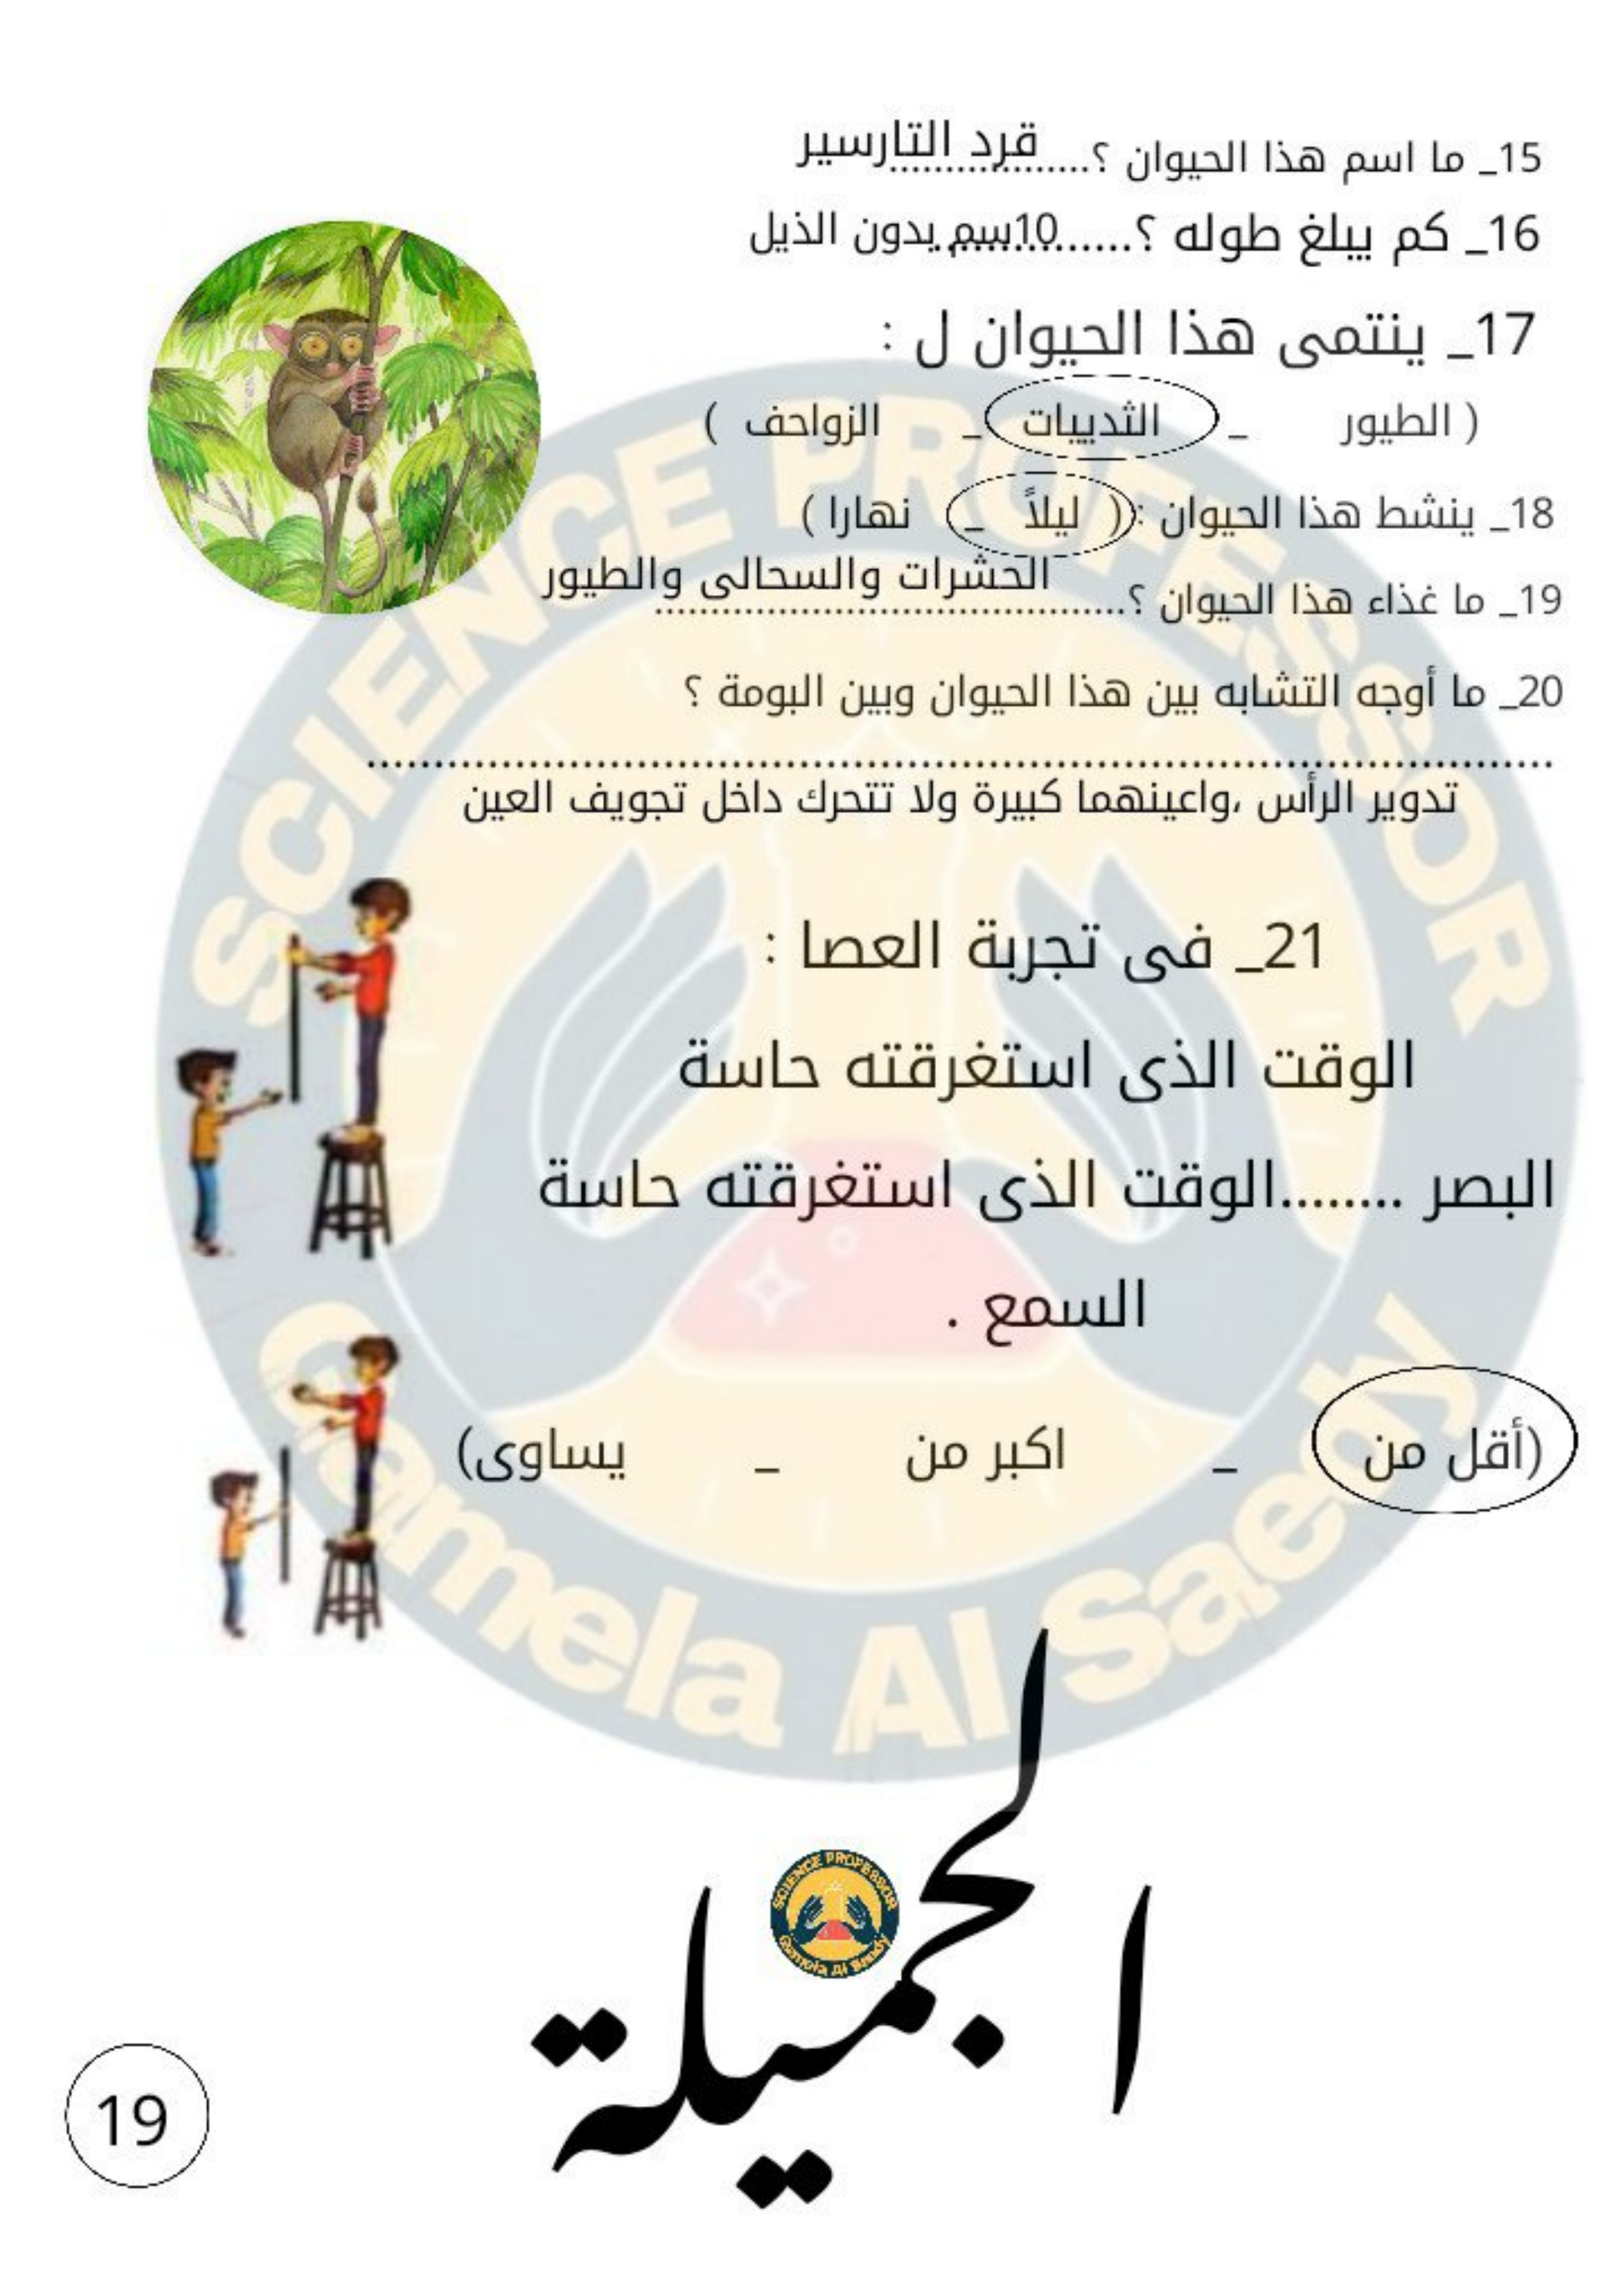 15_ ما اسم هذا الحيوان ؟..................قرد التارسير
16_ كم يبلغ طوله ؟...............10سم بدون الذيل
17_ ينتمى هذا الحيوان ل :
( الطيور _ الثدييات _ الزواحف )
18_ ينشط هذا الحيوان :( ليلاً _ نهارا )
19_ ما غذاء هذا الحيوان ؟..........................................الحشرات والسحالى والطيور
20_ ما أوجه التشابه بين هذا الحيوان وبين البومة ؟
..........................................................................................
تدوير الرأس ،واعينهما كبيرة ولا تتحرك داخل تجويف العين
21_ فى تجربة العصا :
الوقت الذى استغرقته حاسة
البصر ........الوقت الذى استغرقته حاسة
السمع .
(أقل من _ اكبر من _ يساوى)
SCIENCE PROFESSOR
Gamela Al Saedy
الجميلة
SCIENCE PROFESSOR
Gamela Al Saedy
19